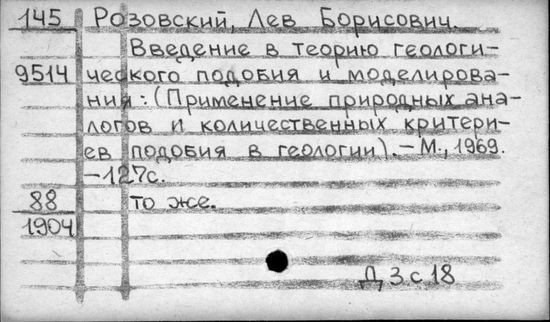 145 Розовский, Лев Борисович.
Введение в теорию геологи-
9514 ческого подобия и моделирова-
ния: (Применение природных ана-
логов и количественных критери-
ев подобия в геологии). – М., 1969.
– 127с.
88 то же.
1904
Д 3 с 18